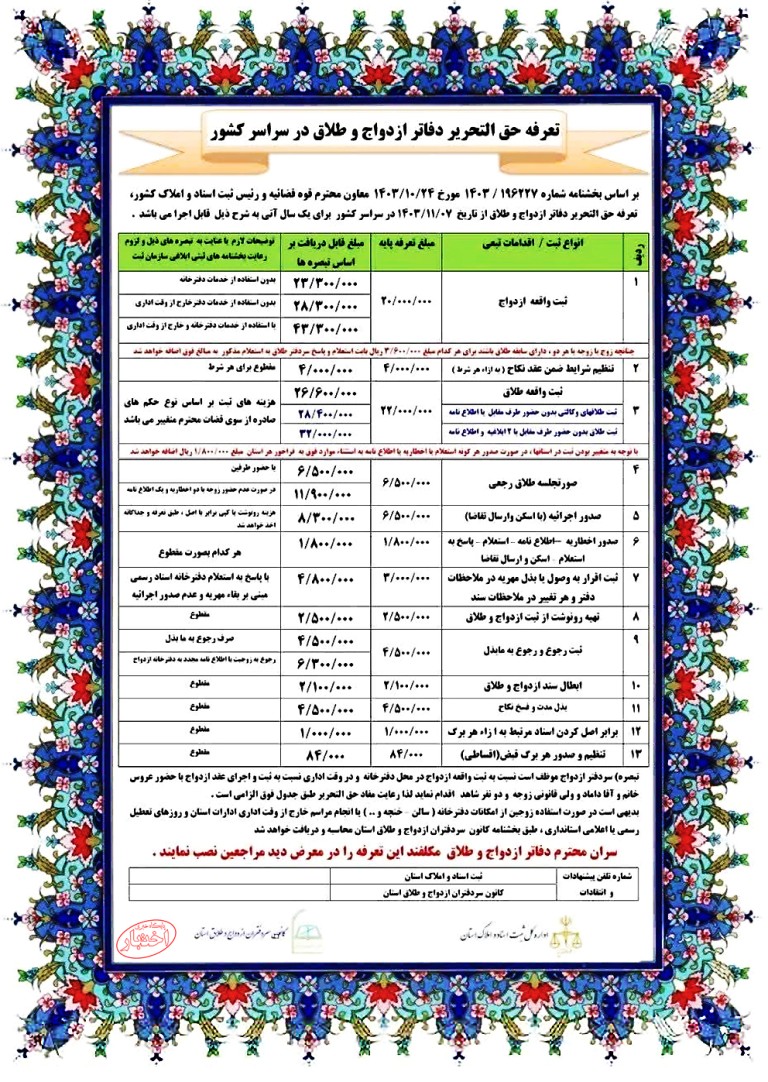 تعرفه حق التحریر دفاتر ازدواج و طلاق در سراسر کشور
بر اساس بخشنامه شماره ۱۹۶۲۲۷ / ۱۴۰۳ مورخ ۱۴۰۳/۱۰/۲۴ معاون محترم قوه قضائیه و رئیس ثبت اسناد و املاک کشور،
تعرفه حق التحریر دفاتر ازدواج و طلاق از تاریخ ۱۴۰۳/۱۱/۰۷ در سراسر کشور برای یک سال آتی به شرح ذیل قابل اجرا می باشد .
ردیف
انواع ثبت / اقدامات تبعی
مبلغ تعرفه پایه
مبلغ قابل دریافت بر
اساس تبصره ها
توضیحات لازم با عنایت به تبصره های ذیل و لزوم
رعایت بخشنامه های ثبتی ابلاغی سازمان ثبت
۱
ثبت واقعه ازدواج
۲۰/۰۰۰/۰۰۰
۲۳/۳۰۰/۰۰۰
بدون استفاده از خدمات دفترخانه
۲۸/۳۰۰/۰۰۰
بدون استفاده از خدمات دفترخارج از وقت اداری
۴۳/۳۰۰/۰۰۰
با استفاده از خدمات دفترخانه و خارج از وقت اداری
چنانچه زوج یا زوجه یا هر دو ، دارای سابقه طلاق باشند برای هر کدام مبلغ ۳/۶۰۰/۰۰۰ ریال بابت استعلام و پاسخ سردفتر طلاق به استعلام مذکور به مبالغ فوق اضافه خواهد شد
۲
تنظیم شرایط ضمن عقد نکاح ( به ازاء هر شرط )
۴/۰۰۰/۰۰۰
۴/۰۰۰/۰۰۰
مقطوع برای هر شرط
۳
ثبت واقعه طلاق
۲۲/۰۰۰/۰۰۰
۲۶/۶۰۰/۰۰۰
هزینه های ثبت بر اساس نوع حکم های
صادره از سوی قضات محترم متغییر می باشد
ثبت طلاقهای وکالتی بدون حضور طرف مقابل با اطلاع نامه
۲۸/۴۰۰/۰۰۰
ثبت طلاق بدون حضور طرف مقابل با ۲ ابلاغیه و اطلاع نامه
۳۲/۰۰۰/۰۰۰
با توجه به متغییر بودن ثبت در استانها ، در صورت صدور هر گونه استعلام یا اخطاریه یا اطلاع نامه به استثناء موارد فوق به فراخور هر استان مبلغ ۱/۸۰۰/۰۰۰ ریال اضافه خواهد شد
۴
صورتجلسه طلاق رجعی
۶/۵۰۰/۰۰۰
۶/۵۰۰/۰۰۰
با حضور طرفین
۱۱/۹۰۰/۰۰۰
در صورت عدم حضور زوجه با دو اخطاریه و یک اطلاع نامه
۵
صدور اجرائیه (با اسکن وارسال تقاضا)
۶/۵۰۰/۰۰۰
۸/۳۰۰/۰۰۰
هزینه رونوشت یا کپی برابر با اصل ، طبق تعرفه و جداگانه
اخذ خواهد شد
۶
صدور اخطاریه –اطلاع نامه – استعلام – پاسخ به
استعلام – اسکن و ارسال تقاضا
۱/۸۰۰/۰۰۰
۱/۸۰۰/۰۰۰
هر کدام بصورت مقطوع
۷
ثبت اقرار به وصول یا بذل مهریه در ملاحظات
دفتر و هر تغییر در ملاحظات سند
۳/۰۰۰/۰۰۰
۴/۸۰۰/۰۰۰
با پاسخ به استعلام دفترخانه اسناد رسمی
مبنی بر بقاء مهریه و عدم صدور اجرائیه
۸
تهیه رونوشت از ثبت ازدواج و طلاق
۲/۵۰۰/۰۰۰
۲/۵۰۰/۰۰۰
مقطوع
۹
ثبت رجوع و رجوع به مابذل
۴/۵۰۰/۰۰۰
۴/۵۰۰/۰۰۰
صرف رجوع به ما بذل
۶/۳۰۰/۰۰۰
رجوع به زوجیت با اطلاع نامه مجدد به دفترخانه ازدواج
۱۰
ابطال سند ازدواج و طلاق
۲/۱۰۰/۰۰۰
۲/۱۰۰/۰۰۰
مقطوع
۱۱
بذل مدت و فسخ نکاح
۴/۵۰۰/۰۰۰
۴/۵۰۰/۰۰۰
مقطوع
۱۲
برابر اصل کردن اسناد مرتبط به ازاء هر برگ
۱/۰۰۰/۰۰۰
۱/۰۰۰/۰۰۰
مقطوع
۱۳
تنظیم و صدور هر برگ قبض(اقساطی)
۸۴/۰۰۰
۸۴/۰۰۰
مقطوع
تبصره) سردفتر ازدواج موظف است نسبت به ثبت واقعه ازدواج در محل دفترخانه و در وقت اداری نسبت به ثبت و اجرای عقد ازدواج با حضور عروس
خانم و آقا داماد و ولی قانونی زوجه و دو نفر شاهد اقدام نماید لذا رعایت مفاد حق التحریر طبق جدول فوق الزامی است .
بدیهی است در صورت استفاده زوجین از امکانات دفترخانه ( سالن – خنچه و .. ) یا انجام مراسم خارج از وقت اداری ادارات استان و روزهای تعطیل
رسمی یا اعلامی استانداری ، طبق بخشنامه کانون سردفتران ازدواج و طلاق استان محاسبه و دریافت خواهد شد
سران محترم دفاتر ازدواج و طلاق مکلفند این تعرفه را در معرض دید مراجعین نصب نمایند .
شماره تلفن پیشنهادات
و انتقادات
ثبت اسناد و املاک استان
کانون سردفتران ازدواج و طلاق استان
اداره کل ثبت اسناد و املاک استان
کانون سردفتران ازدواج و طلاق استان
پایگاه خبری
اختبار